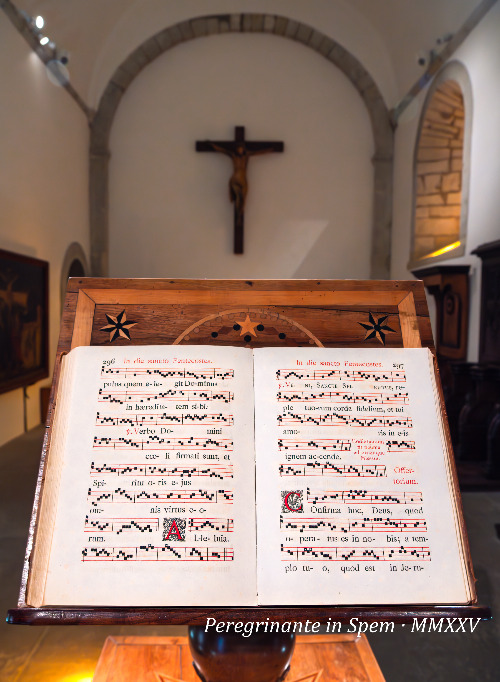 296 In die sancto Pentecostes.
pulus quem e-le- git Do-minus
in hæredita- tem si-bi.
℣. Verbo Do- mini
cœ- li firmati sunt, et
Spi- ritu o- ris e- jus
om- nis virtus e- o-
rum. A l-le- luia.
In die sancto Pentecostes. 297
℣. Ve- ni, Sancte Spi- re-
ple tuo-rum corda fidelium, et tui
amo- ris in e-is
ignem ac-cende.
Offer-
torium.
COnfirma hoc, Deus, quod
o- pera- tus es in no- bis; a tem-
plo tu- o, quod est in Je-ru-
Peregrinante in Spem · MMXXV